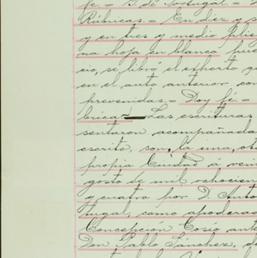 fé = G. de Portugal =
Rúbricas. = En diez y s
y en tres y medio plie
na hoja en blanco prue
ce, se libró el exhorto q
en el auto anterior co
prevenidas = Doy fé =
brica = Las escrituras
sentaron acompañada
escrito, son, la una, ot
propia Ciudad á vein
gosto de mil ochocien
y cuatro por D. Anto
tugal, como apodera
Concepcion Cosio ante
Don Pablo Sanchez, d